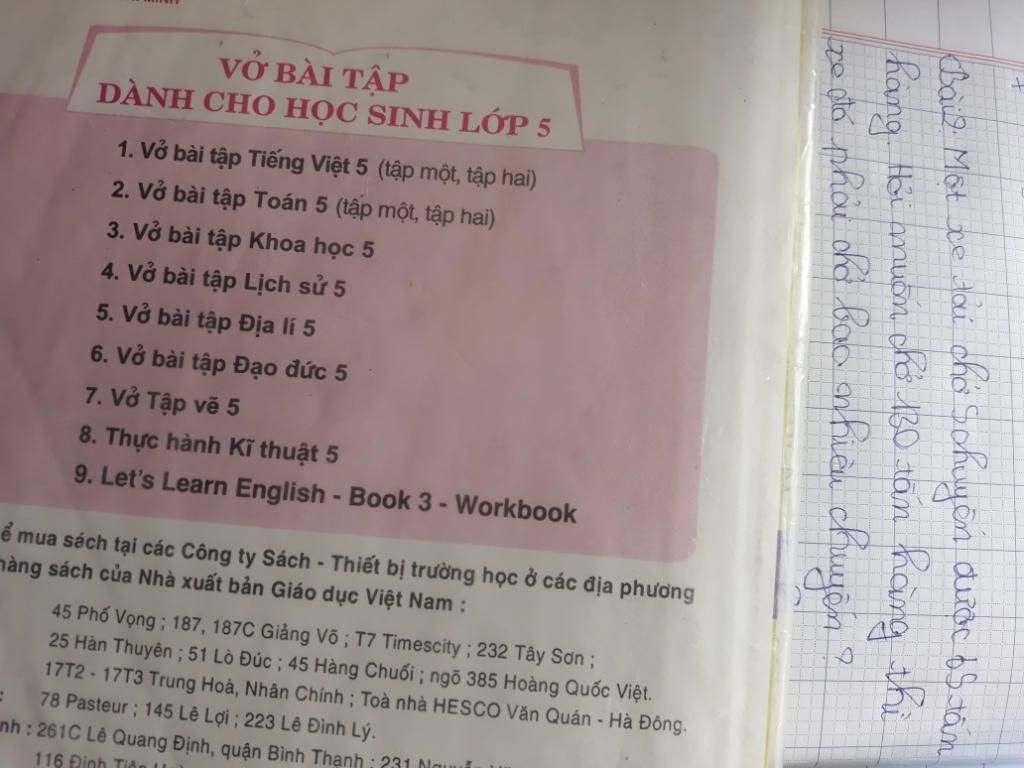 MINH
VỞ BÀI TẬP
DÀNH CHO HỌC SINH LỚP 5
1. Vở bài tập Tiếng Việt 5 (tập một, tập hai)
2. Vở bài tập Toán 5 (tập một, tập hai)
3. Vở bài tập Khoa học 5
4. Vở bài tập Lịch sử 5
5. Vở bài tập Địa lí 5
6. Vở bài tập Đạo đức 5
7. Vở Tập vẽ 5
8. Thực hành Kĩ thuật 5
9. Let's Learn English - Book 3 - Workbook
ể mua sách tại các Công ty Sách - Thiết bị trường học ở các địa phương
hàng sách của Nhà xuất bản Giáo dục Việt Nam :
45 Phố Vọng ; 187, 187C Giảng Võ ; T7 Timescity ; 232 Tây Sơn ;
25 Hàn Thuyên ; 51 Lò Đúc ; 45 Hàng Chuối ; ngõ 385 Hoàng Quốc Việt.
17T2 - 17T3 Trung Hoà, Nhân Chính ; Toà nhà HESCO Văn Quán - Hà Đông.
78 Pasteur ; 145 Lê Lợi ; 223 Lê Đình Lý.
nh : 261C Lê Quang Định, quận Bình Thạnh ; 231
116 Đinh
Bài 2. Một xe tải chở 5 chuyến được 65 tấn
hàng. Hỏi muốn chở 130 tấn hàng thì
xe đó phải chở bao nhiêu chuyến?